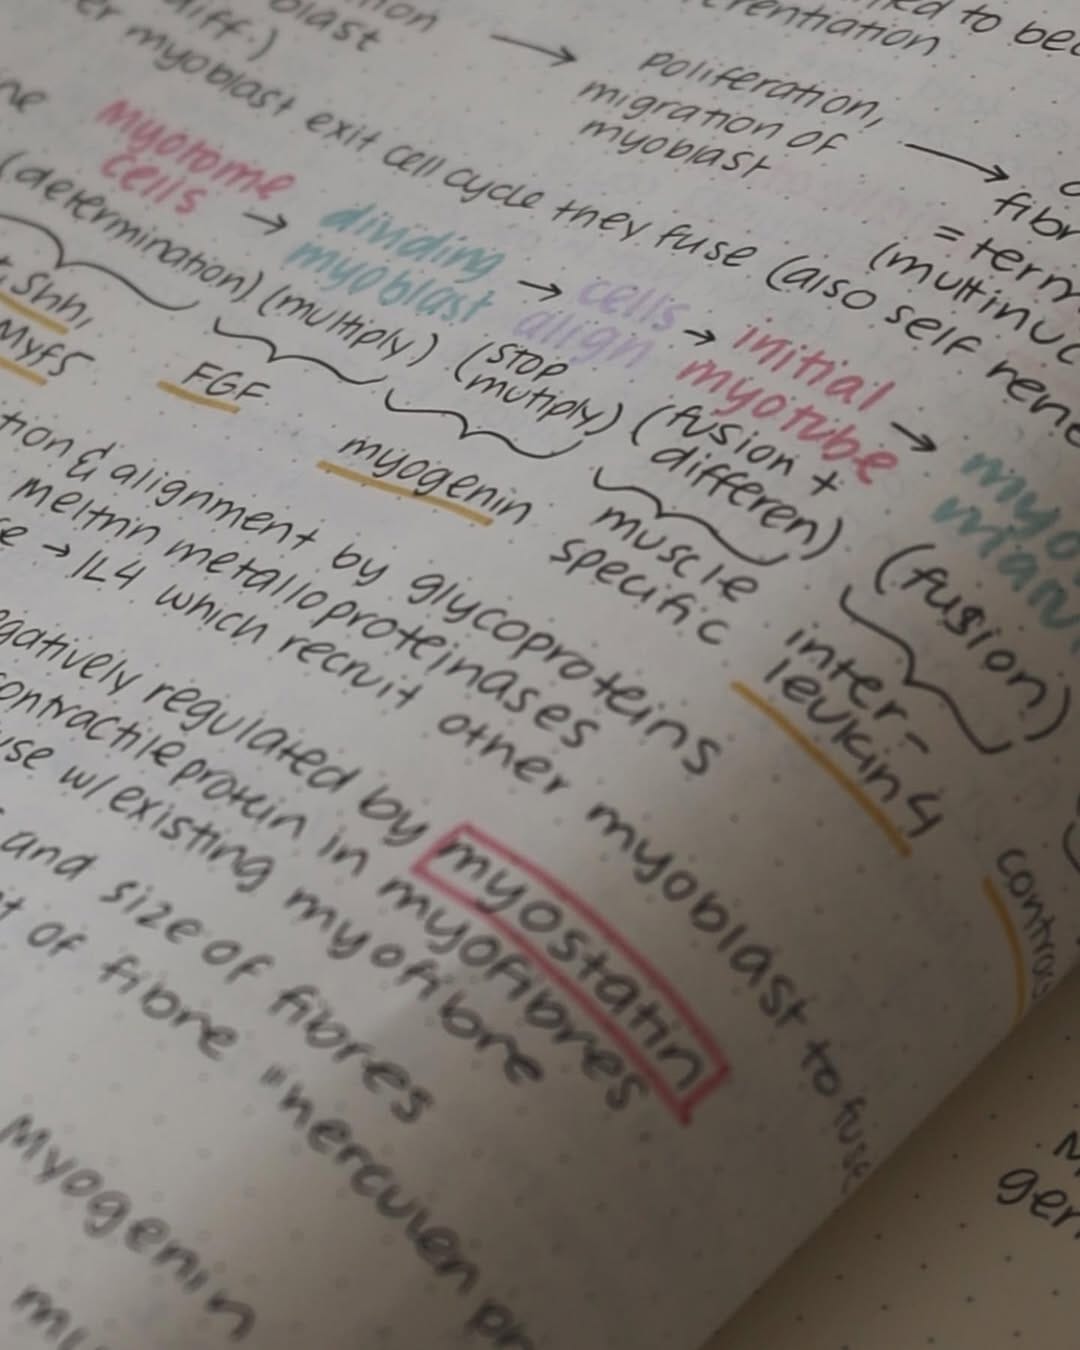 to be
erentiation
diff.)
blast
→ poliferation,
migration of
myoblast
→
fibr
= term
(multinuc
myoblast exit cell cycle they fuse (also self rene
Myotome
cells → dividing
myoblast → cells
align → initial
myotube →
(determination) (multiply) (stop
mutiply) (fusion +
differen) (fusion)
Shh,
Myf5
FGF
myogenin
muscle
specific
inter-
leukin 4
tion & alignment by glycoproteins
meltrin metalloproteinases
→ IL4 which recruit other myoblast to fuse
gatively regulated by myostatin
contractile protein in myofibres
use w/existing myofibre
and size of fibres
of fibre "herculen
Myogenin